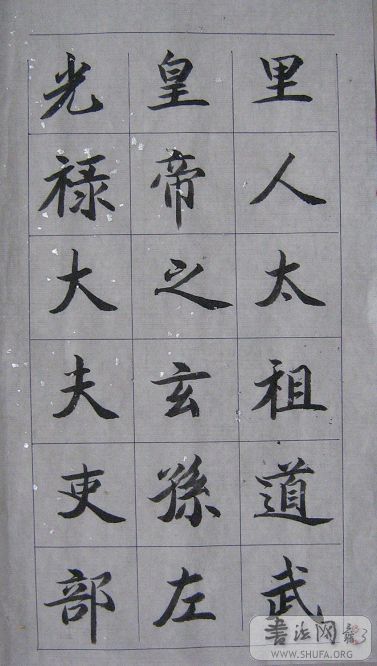 里人太祖道武
皇帝之玄孫左
光禄大夫吏部
書法网
WWW.SHUFA.ORG